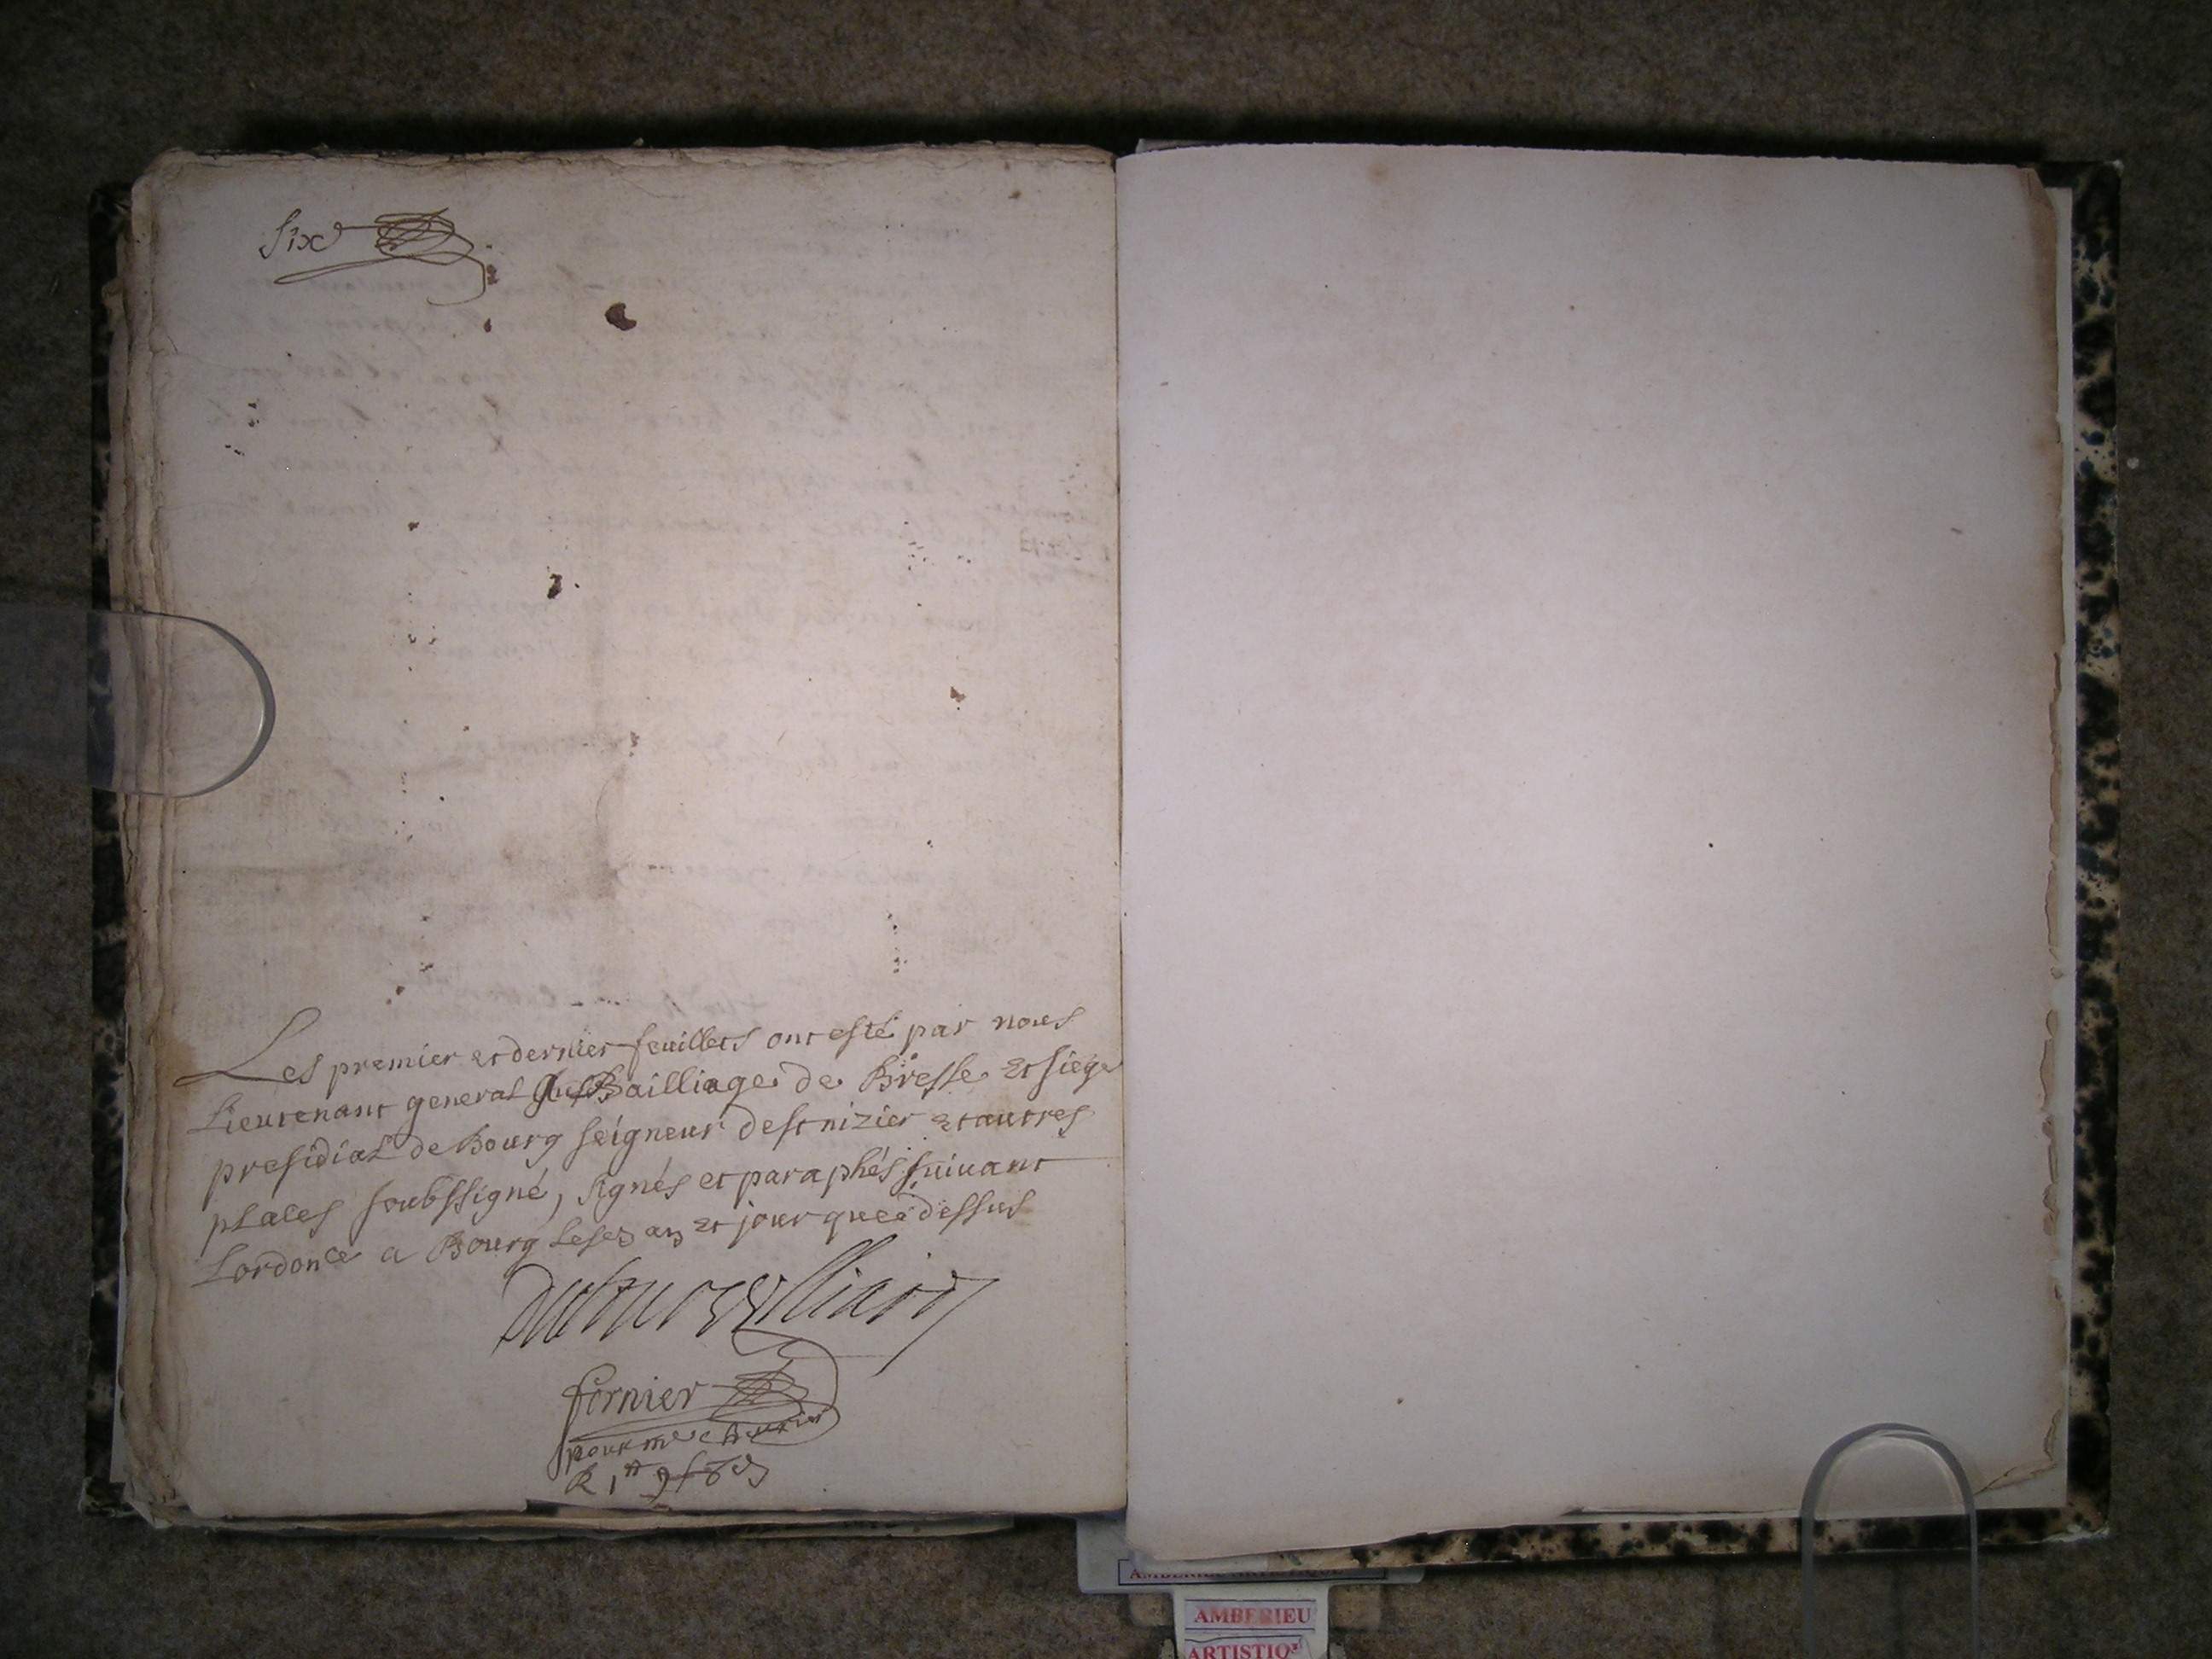 Six
Les premier et dernier feuillets ont esté par nous
Lieutenant general Bailliage de Bresse et siege
presidial de Bourg seigneur de st nizier et autres
places soubssigné, signés et paraphés suivant
Lordonce a Bourg les an et jour que dessus
fornier
pour mre
AMBERIEU
ARTISTIQ